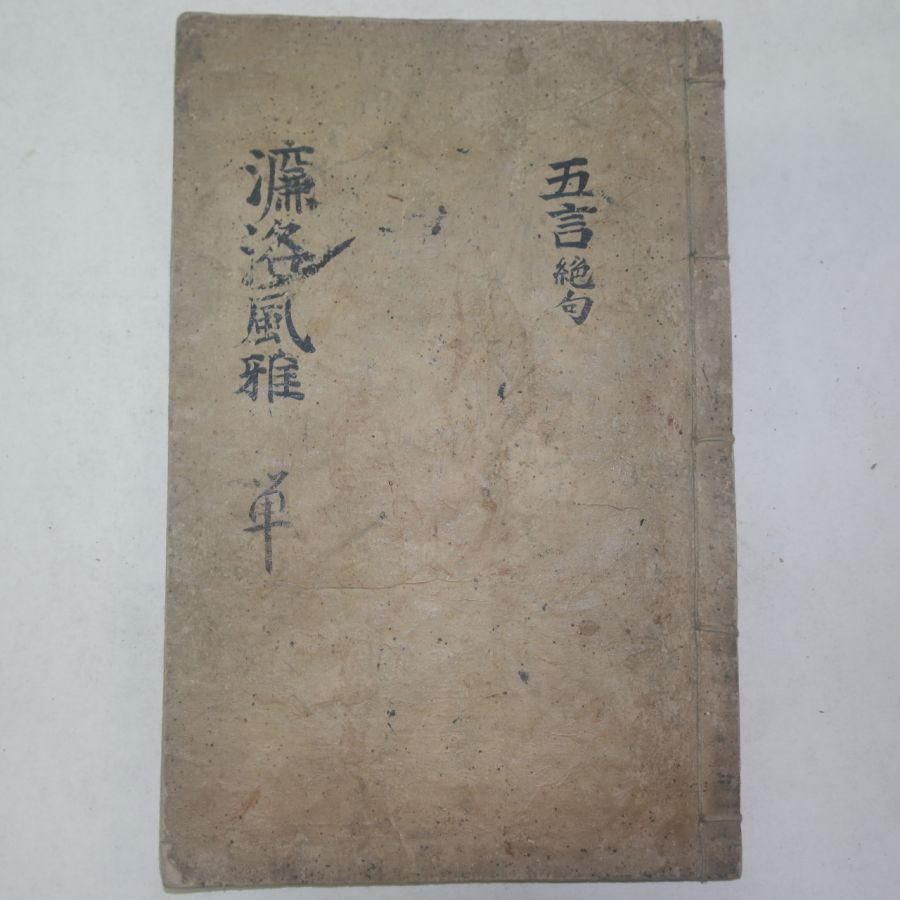 五言絶句
濂洛風雅 単